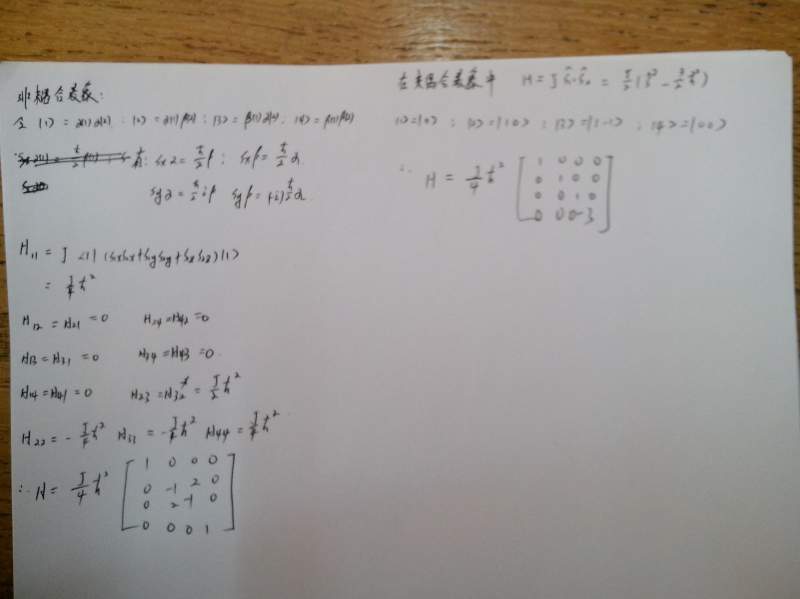 非耦合表象:
令 |1> = α(1)α(2) . |2> = α(1)β(2) ; |3> = β(1)α(2) . |4> = β(1)β(2)
有: Sxα = ħ/2 β ; Sxβ = ħ/2 α
Syα = ħ/2 iβ Syβ =
H₁₁ = J <1| (S₁ₓS₂ₓ+S₁yS₂y+S₁zS₂z) |1>
= J/4 ħ²
H₁₂ = H₂₁ = 0 H₂₄ = H₄₂ = 0
H₁₃ = H₃₁ = 0 H₃₄ = H₄₃ = 0
H₁₄ = H₄₁ = 0 H₂₃ = H₃₂* = J/2 ħ²
H₂₂ = - J/4 ħ² H₃₃ = - J/4 ħ² H₄₄ = J/4 ħ²
∴ H = J/4 ħ² [
1 0 0 0
0 -1 2 0
0 2 -1 0
0 0 0 1
]
在耦合表象中 H = J S₁·S₂ = J/2 (S² - 3/2 ħ²)
|1> = |1 1> ; |2> = |1 0> ; |3> = |1 -1> ; |4> = |0 0>
∴ H = J/4 ħ² [
1 0 0 0
0 1 0 0
0 0 1 0
0 0 0 -3
]